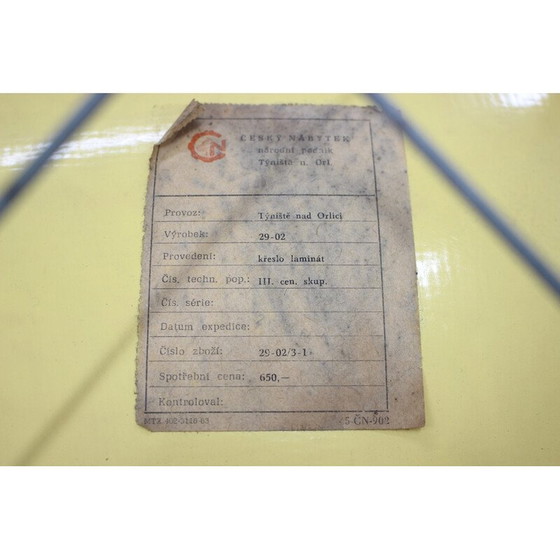 ČN
ČESKÝ NÁBYTEK
národní podnik
Týniště n. Orl.
Provoz: Týniště nad Orlicí
Výrobek: 29-02
Provedení: křeslo laminát
Čís. techn. pop.: III. cen. skup.
Čís. série:
Datum expedice:
Číslo zboží: 29-02/3-1-
Spotřební cena: 650,—
Kontroloval:
5 ČN-902